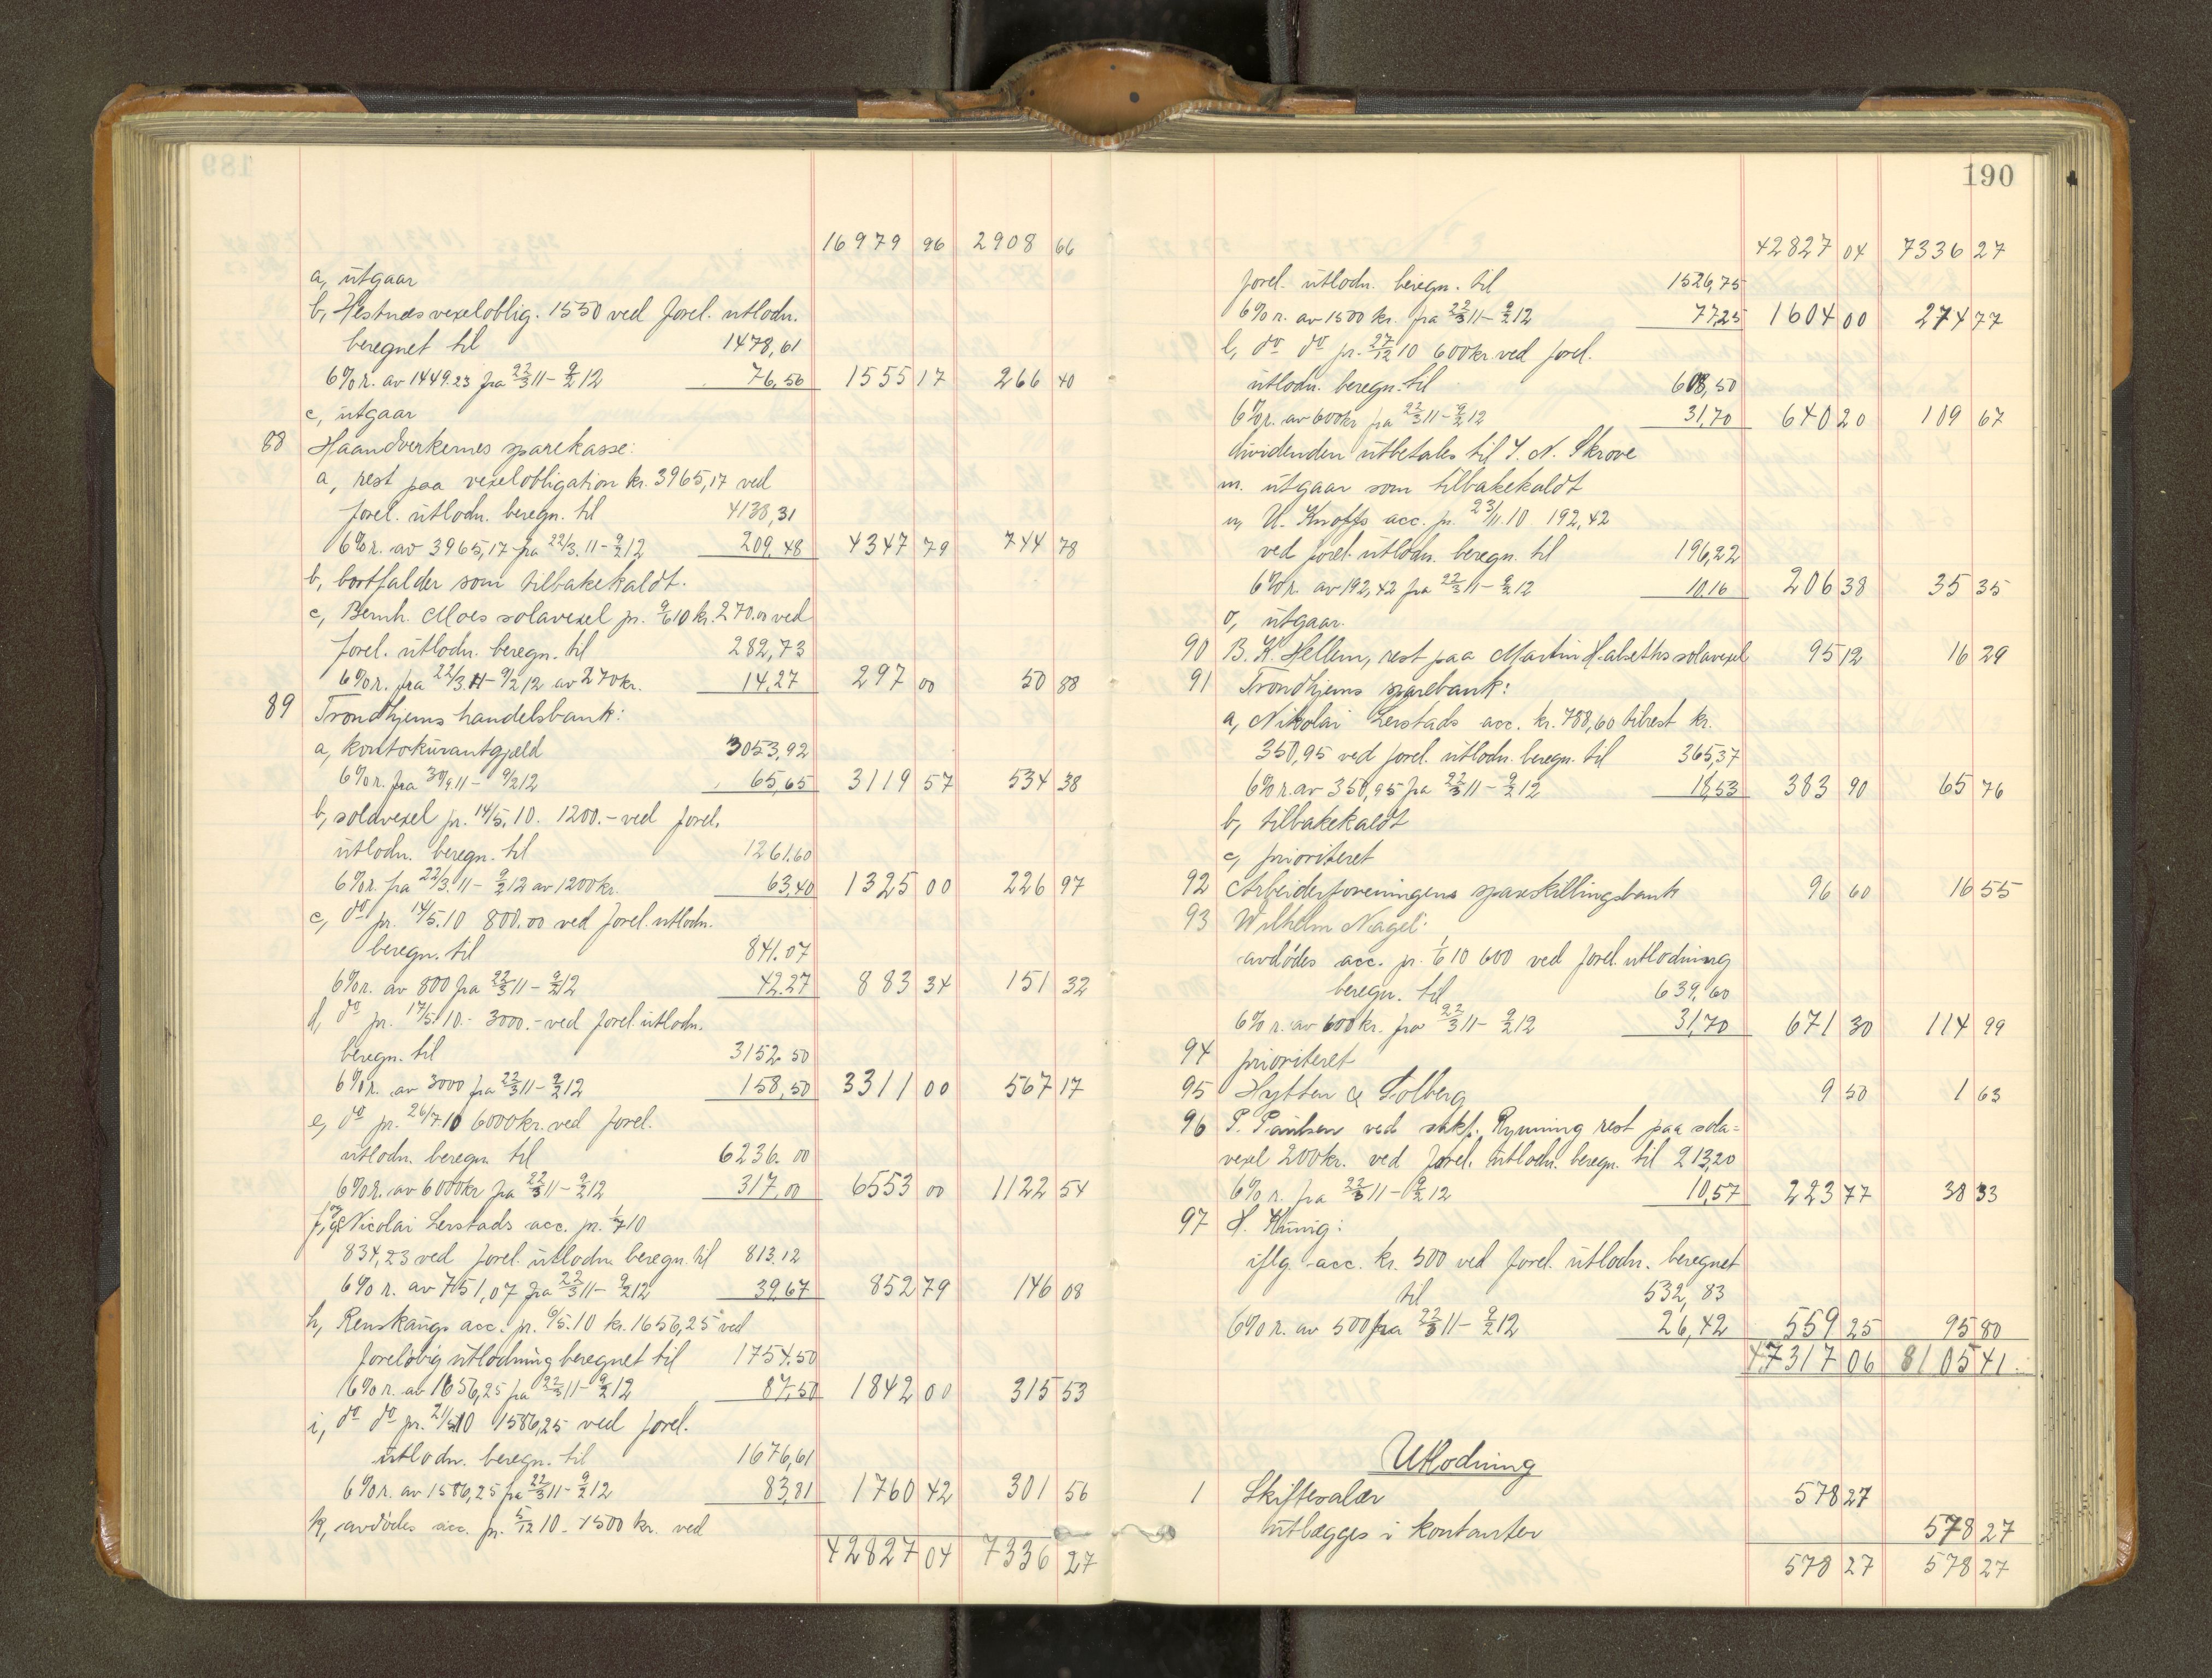 189
16979 96 2908 66
a, utgaar
b, Hestnes vexeloblig. 1550 ved forel. utlodn.
beregnet til 1478,61
6% r. av 1449.23 fra 22/3 11 - 9/2 12 76,56 1555 17 266 40
c, utgaar
88 Haandverkernes sparekasse:
a, rest paa vexelobligation kr. 3965,17 ved
forel. utlodn. beregn. til 4138,31
6% r. av 3965,17 fra 22/3. 11 - 9/2 12 209,48 4347 79 744 78
b, bortfalder som tilbakekaldt.
c, Bernh. Moes solavexel pr. 9/6 10 kr. 270.00 ved
forel. utlodn. beregn. til 282,73
6% r. fra 22/3. 11 - 9/2 12 av 270 kr. 14,27 297 00 50 88
89 Trondhjems handelsbank:
a, kontokurantgjeld 3053,92
6% r. fra 30/9 11 - 9/2 12 65,65 3119 57 534 38
b, solavexel pr. 14/5. 10. 1200.- ved forel.
utlodn. beregn. til 1261.60
6% r. fra 22/3. 11 - 9/2 12 av 1200 kr. 63,40 1325 00 226 97
c, do pr. 14/5. 10 800.00 ved forel. utlodn.
beregn. til 841.07
6% r. av 800 fra 22/3 11 - 9/2 12 42.27 883 34 151 32
d, do pr. 17/5. 10.- 3000.- ved forel. utlodn.
beregn. til 3152.50
6% r. av 3000 fra 22/3 11 - 9/2 12 158,50 3311 00 567 17
e, do pr. 26/7 10 6000 kr. ved forel.
utlodn. beregn. til 6236.00
6% r. av 6000 kr fra 22/3 11 - 9/2 12 317,00 6553 00 1122 54
f, og g, Nicolai Lerstads acc. pr. 1/7 10
834,23 ved forel. utlodn. beregn. til 813.12
6% r. av 751,07 fra 22/3 11 - 9/2 12 39,67 852 79 146 08
h, Renskaugs acc. pr. 6/5. 10 kr. 1656,25 ved
foreløbig utlodning beregnet til 1754.50
6% r. av 1656,25 fra 22/3 11 - 9/2 12 87,50 1842 00 315 53
i, do do pr. 21/5 10 1586,25 ved forel.
utlodn. beregn. til 1676,61
6% r. av 1586,25 fra 22/3 11 - 9/2 12 83,81 1760 42 301 56
k, avdødes acc. pr. 5/12 10 - 1500 kr. ved
42827 04 7336 27
190
42827 04 7336 27
forel. utlodn. beregn. til 1526,75
6% r. av 1500 kr. fra 22/3 11 - 9/2 12 77,25 1604 00 274 77
l, do do pr. 27/12 10 600 kr. ved forel.
utlodn. beregn. til 608,50
6% r. av 600 kr fra 22/3 11 - 9/2 12 31,70 640 20 109 67
dividenden utbetales til I. N. Skrove
m. utgaar som tilbakekaldt
n, U. Knoffs acc. pr. 23/11. 10 192,42
ved forel. utlodn. beregn. til 196,22
6% r. av 192,42 fra 22/3 11 - 9/2 12 10,16 206 38 35 35
o, utgaar.
90 B. K. Hellem, rest paa Martin Halseths solavexel 95 12 16 29
91 Trondhjems sparebank:
a, Nikolai Lerstads acc. kr. 788,60 tilrest kr.
350,95 ved forel. utlodn. beregn. til 365,37
6% r. av 350,95 fra 22/3 11 - 9/2 12 18,53 383 90 65 76
b, tilbakekaldt
c, prioriteret
92 Arbeiderforeningens spareskillingsbank 96 60 16 55
93 Wilhelm Nagel:
avdødes acc. pr. 1/6 10 600 ved forel. utlodning
beregn. til 639,60
6% r. av 600 kr. fra 22/3 11 - 9/2 12 31,70 671 30 114 99
94 prioriteret
95 Hytten & Solberg 9 50 1 63
96 P. Paulsen ved sakf. Rynning rest paa sola=
vexel 200 kr. ved forel. utlodn. beregn. til 213,20
6% r. fra 22/3 11 - 9/2 12 10,57 223 77 38 33
97 H. Künig:
iflg. acc. kr. 500 ved forel. utlodn. beregnet
til 532,83
6% r. av 500 fra 22/3 11 - 9/2 12 26,42 559 25 95 80
47317 06 8105 41
Utlodning
1 Skiftesalær 578 27
utlægges i kontanter 578 27
578 27 578 27